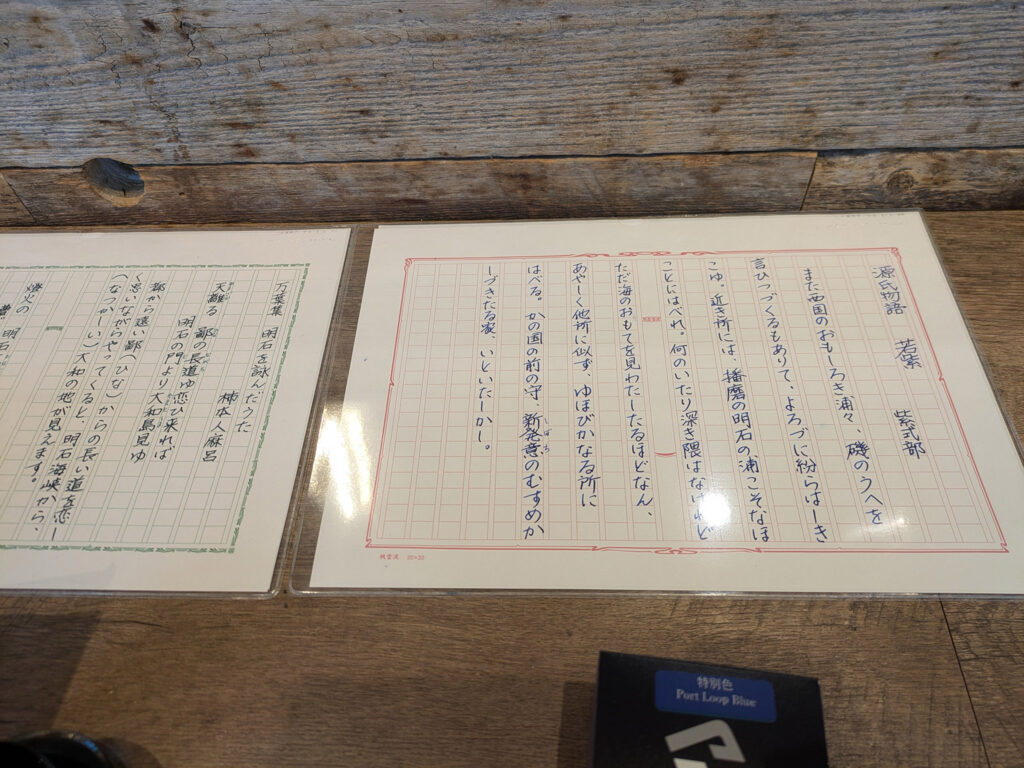 源氏物語 若紫 紫式部
また西国のおもしろき浦々、磯のうへを
言ひつづくるもありて、よろづに紛らはしき
こゆ。近き所には、播磨の明石の浦こそなほ
ことにはべれ。何のいたり深き隈はなけれど
ただ海のおもてを見わたしたるほどなん、
あやしく他所に似ず、ゆほびかなる所に
はべる。かの国の前の守、新発意のむすめか
しぼち
しづきたる家、いといたしかし。
桃雲流 20×20
万葉集 明石を詠んだうた
柿本人麻呂
天離る 鄙の長道ゆ恋ひ来れば
明石の門より大和島見ゆ
都から遠い鄙(ひな)からの長い道を恋し
く思いながらやってくると、明石海峡から、
(なつかしい)大和の地が見えます。
燈火の
明石
特別色
Port Loop Blue